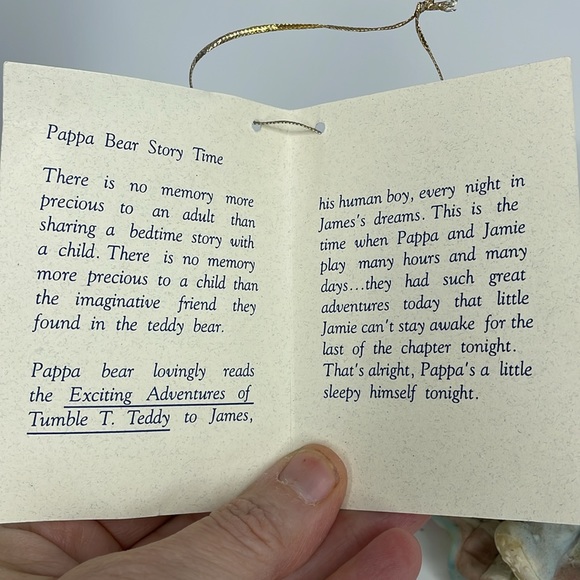 Pappa Bear Story Time
There is no memory more
precious to an adult than
sharing a bedtime story with
a child. There is no memory
more precious to a child than
the imaginative friend they
found in the teddy bear.
Pappa bear lovingly reads
the Exciting Adventures of
Tumble T. Teddy to James,
his human boy, every night in
James's dreams. This is the
time when Pappa and Jamie
play many hours and many
days...they had such great
adventures today that little
Jamie can't stay awake for the
last of the chapter tonight.
That's alright, Pappa's a little
sleepy himself tonight.